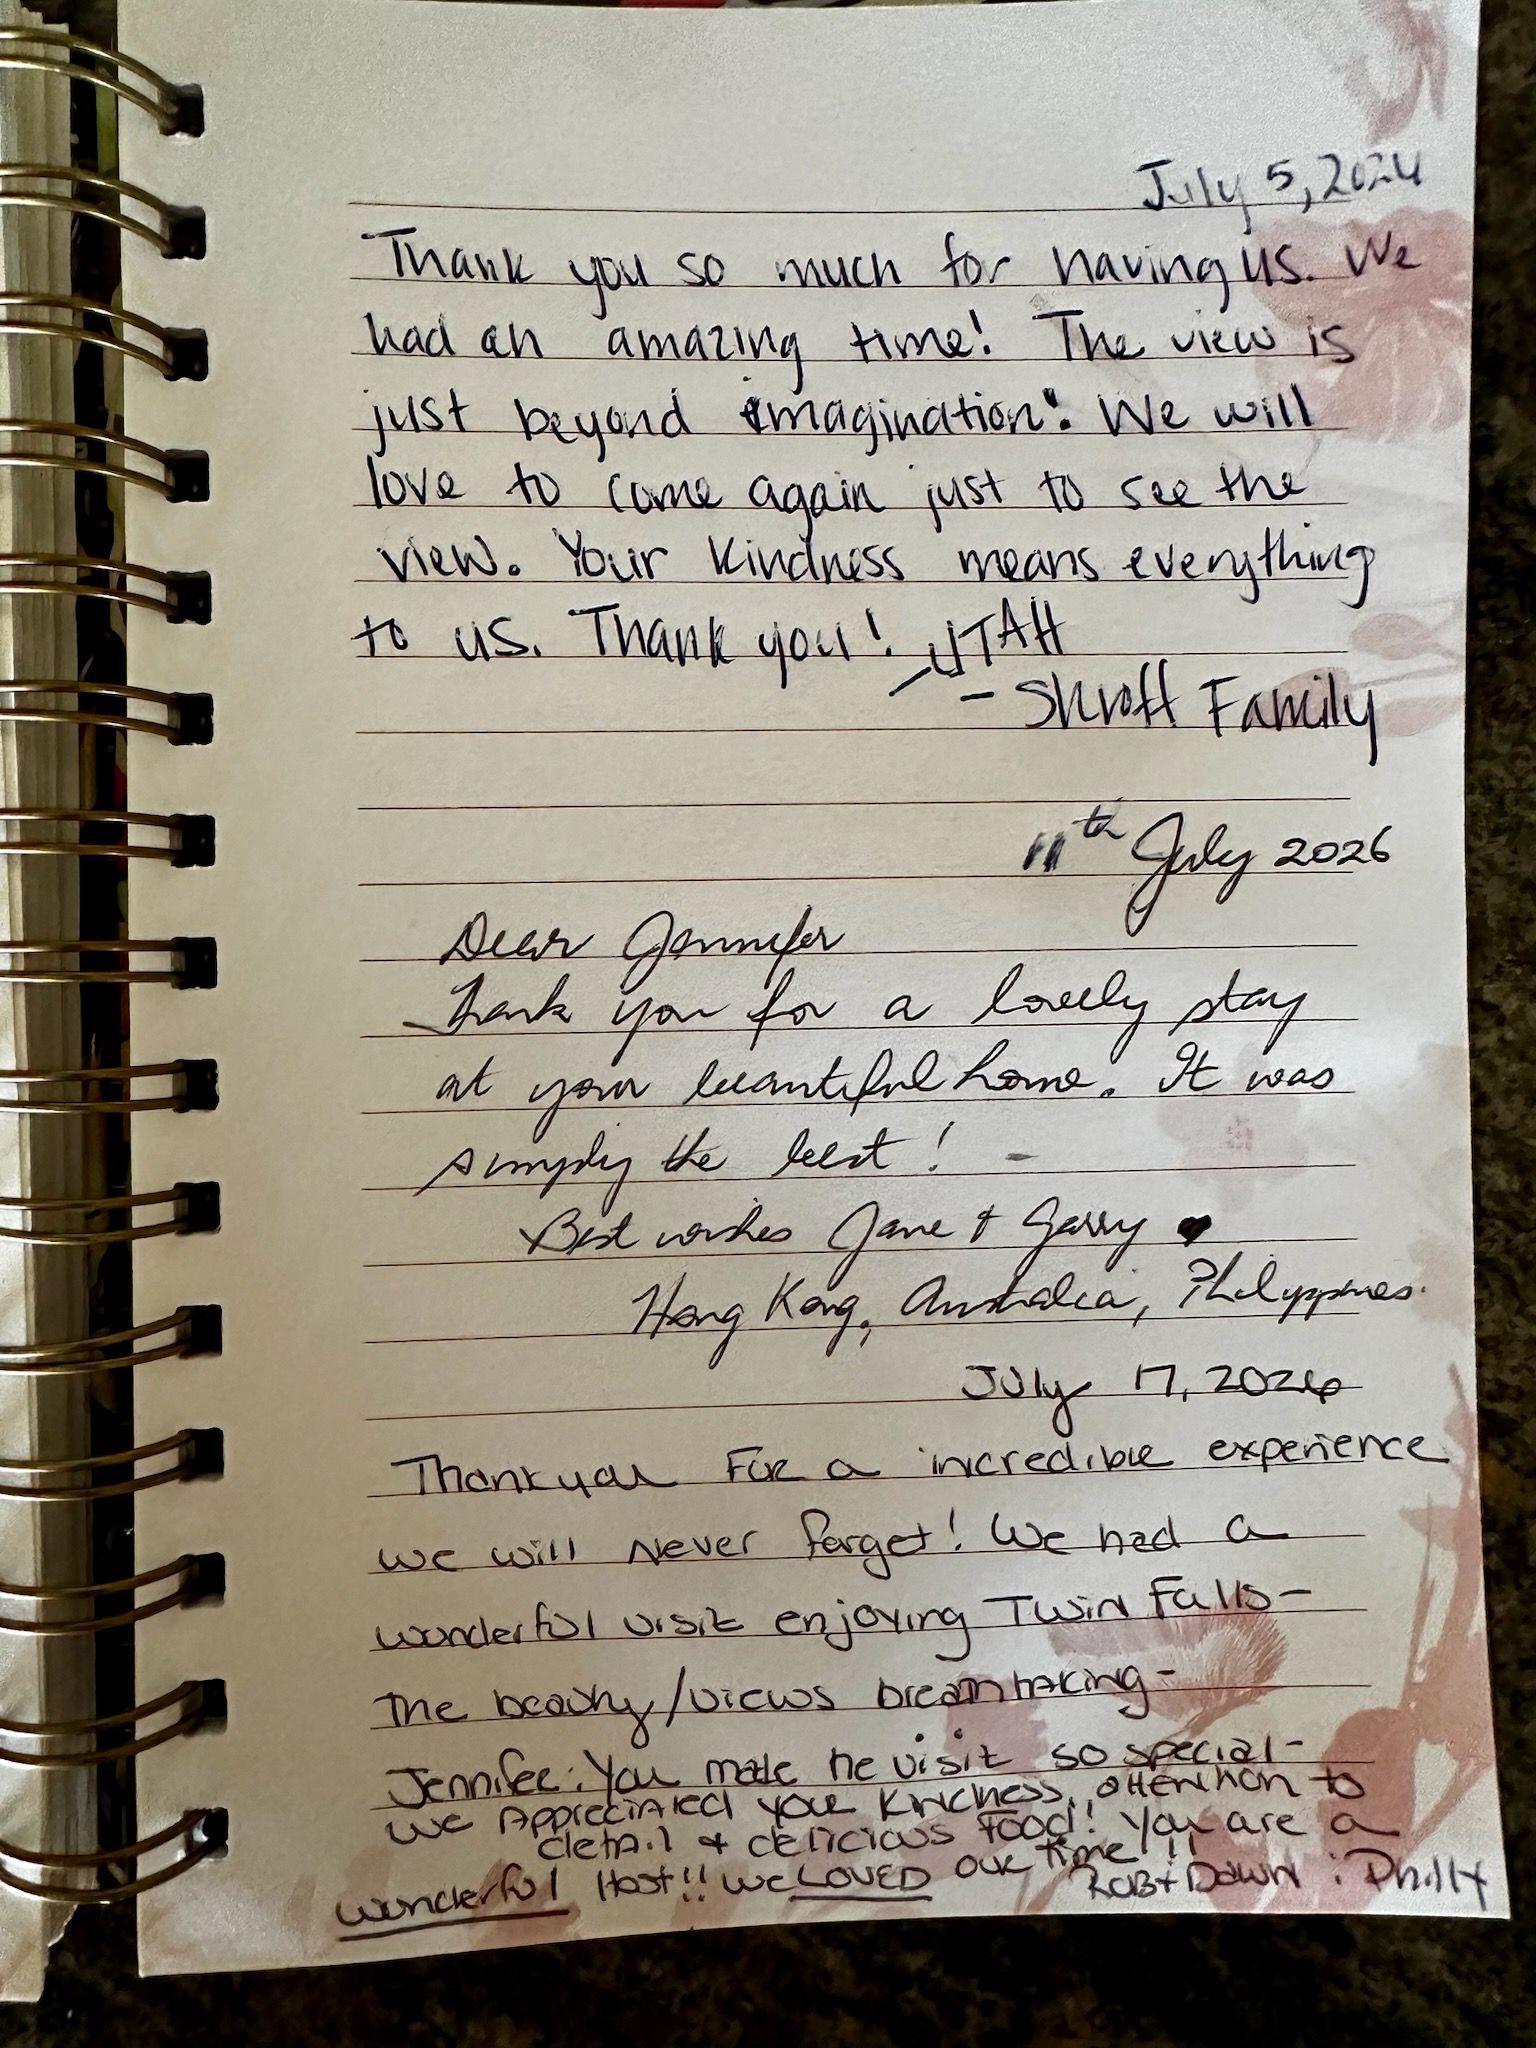 July 5, 2024
Thank you so much for having us. We
had an amazing time! The view is
just beyond imagination! We will
love to come again just to see the
view. Your kindness means everything
to us. Thank you! - UTAH
- Shroff Family
11th July 2026
Dear Jennifer
Thank you for a lovely stay
at your beautiful home. It was
simply the best! -
Best wishes Jane & Garry ♥
Hong Kong, Australia, Philippines.
July 17, 2026
Thank you For a incredible experience
we will Never forget! We had a
wonderful visit enjoying Twin Falls -
The beauty/views breamtaking -
Jennifer: You made the visit so special -
we Appreciated your Kindness, attention to
detail & delicious Food! You are a
wonderful Host!! We LOVED our time!!
Rob + Dawn : Philly